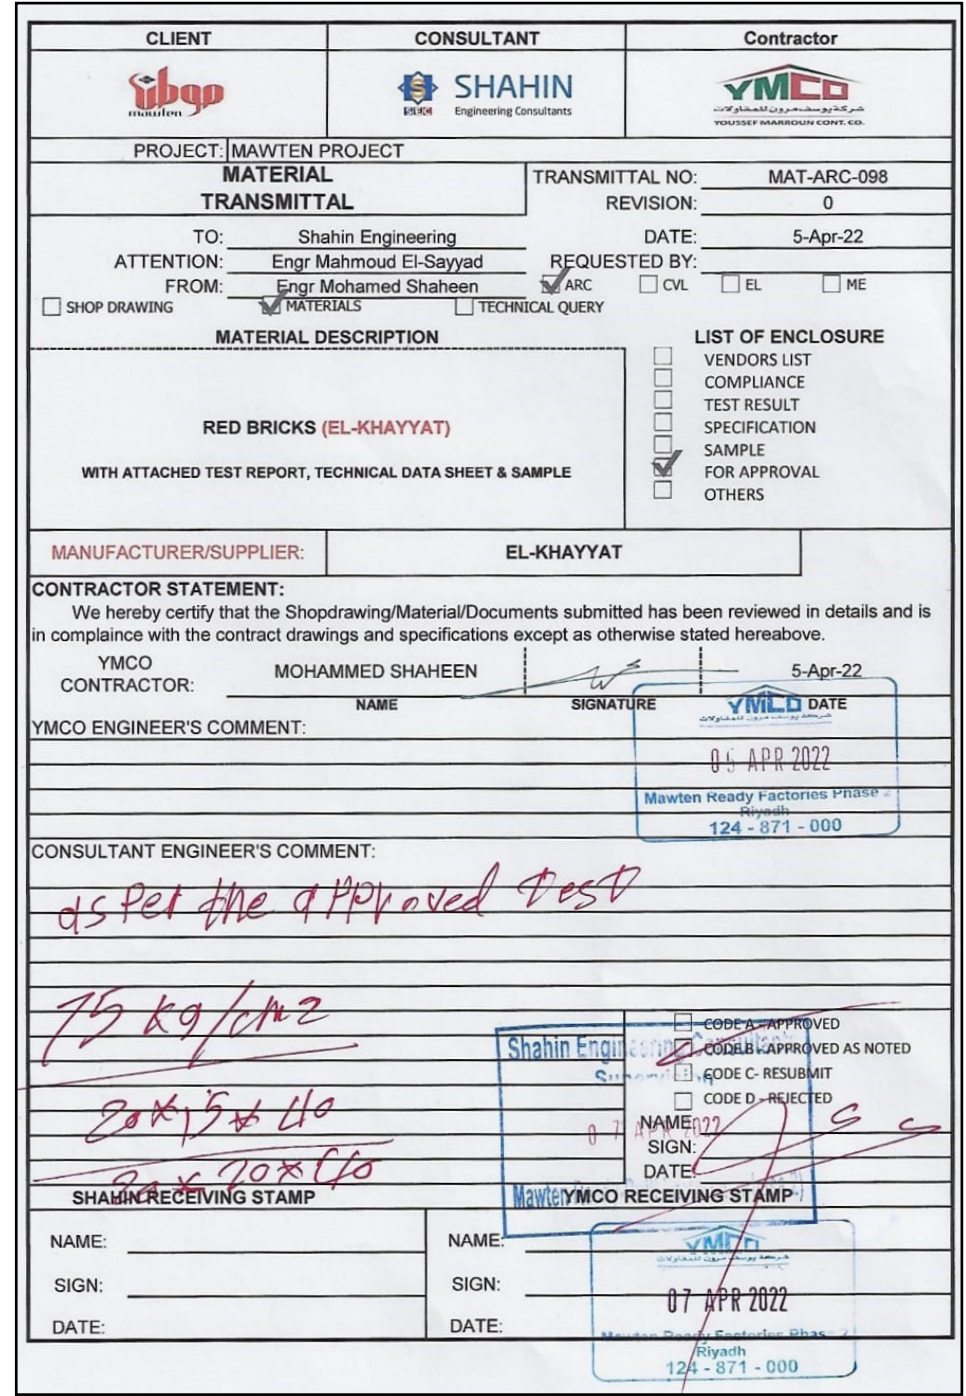 CLIENT CONSULTANT Contractor
موطن
mawten
SHAHIN
SEC Engineering Consultants
YMCO
شركة يوسف مرون للمقاولات
YOUSSEF MARROUN CONT. CO.
PROJECT: MAWTEN PROJECT
MATERIAL
TRANSMITTAL
TRANSMITTAL NO: MAT-ARC-098
REVISION: 0
TO: Shahin Engineering DATE: 5-Apr-22
ATTENTION: Engr Mahmoud El-Sayyad REQUESTED BY:
FROM: Engr Mohamed Shaheen ARC CVL EL ME
SHOP DRAWING MATERIALS TECHNICAL QUERY
MATERIAL DESCRIPTION
RED BRICKS (EL-KHAYYAT)
WITH ATTACHED TEST REPORT, TECHNICAL DATA SHEET & SAMPLE
LIST OF ENCLOSURE
VENDORS LIST
COMPLIANCE
TEST RESULT
SPECIFICATION
SAMPLE
FOR APPROVAL
OTHERS
MANUFACTURER/SUPPLIER: EL-KHAYYAT
CONTRACTOR STATEMENT:
We hereby certify that the Shopdrawing/Material/Documents submitted has been reviewed in details and is
in complaince with the contract drawings and specifications except as otherwise stated hereabove.
YMCO
CONTRACTOR: MOHAMMED SHAHEEN 5-Apr-22
NAME SIGNATURE DATE
YMCO
شركة يوسف مرون للمقاولات
05 APR 2022
Mawten Ready Factories Phase 2
Riyadh
124 - 871 - 000
YMCO ENGINEER'S COMMENT:
CONSULTANT ENGINEER'S COMMENT:
as per the approved test
75 kg/cm2
20 x 15 x 40
20 x 20 x 40
CODE A - APPROVED
CODE B - APPROVED AS NOTED
CODE C- RESUBMIT
CODE D - REJECTED
NAME:
SIGN:
DATE:
Shahin Engineering Consultants
Supervision
07 APR 2022
SHAHIN RECEIVING STAMP YMCO RECEIVING STAMP
NAME: NAME:
SIGN: SIGN:
DATE: DATE:
YMCO
شركة يوسف مرون للمقاولات
07 APR 2022
Mawten Ready Factories Phase 2
Riyadh
124 - 871 - 000